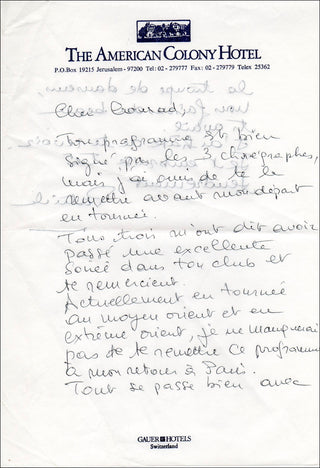 THE AMERICAN COLONY HOTEL
P.O.Box 19215 Jerusalem - 97200 Tel: 02 - 279777 Fax: 02 - 279779 Telex 25362
Cher Conrad,
Ton programme est bien
signé par les 3 chorégraphes,
mais j'ai omis de te le
remettre avant mon départ
en tournée.
Tous trois m'ont dit avoir
passé une excellente
soirée dans ton club et
te remercient.
Actuellement en tournée
au moyen orient et en
extrême orient, je ne manquerai
pas de te remettre ce programme
à mon retour à Paris.
Tout se passe bien avec
GAUER HOTELS
Switzerland